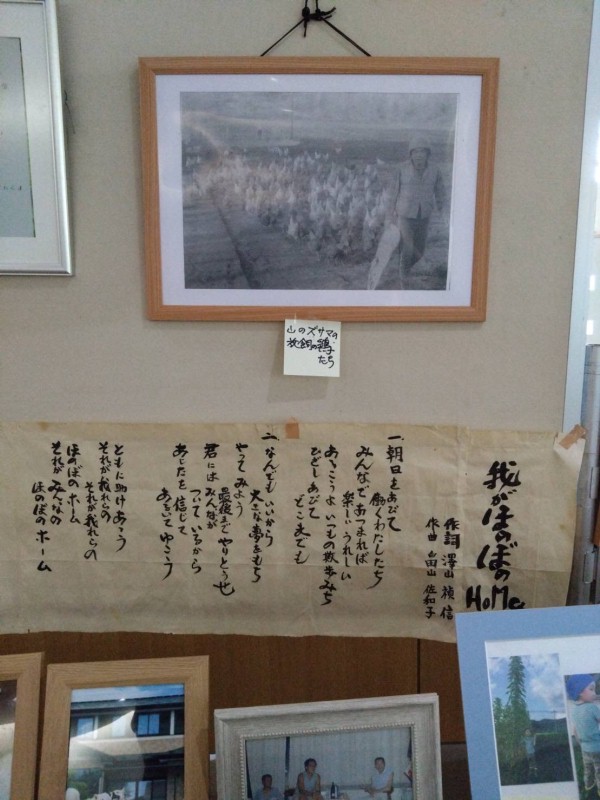 山のズサマの
放飼の鶏
たち
我がほのぼの
HoMe
作詞 澤山 禎信
作曲 畠山 佐和子
一、朝日をあびて
働くわたしたち
みんなであつまれば
楽しい うれしい
あるこうよ いつもの散歩みち
ひざしあびて
どこまでも
二、なんでもいいから
大きな夢をもち
やってみよう
最後までやりとうせ
君にはみんなが
ついているから
あしたを信じて
ゆこう
ともに助けあう
それが我れらの
それが我れらの
ほのぼのホーム
それがみんなの
ほのぼのホーム